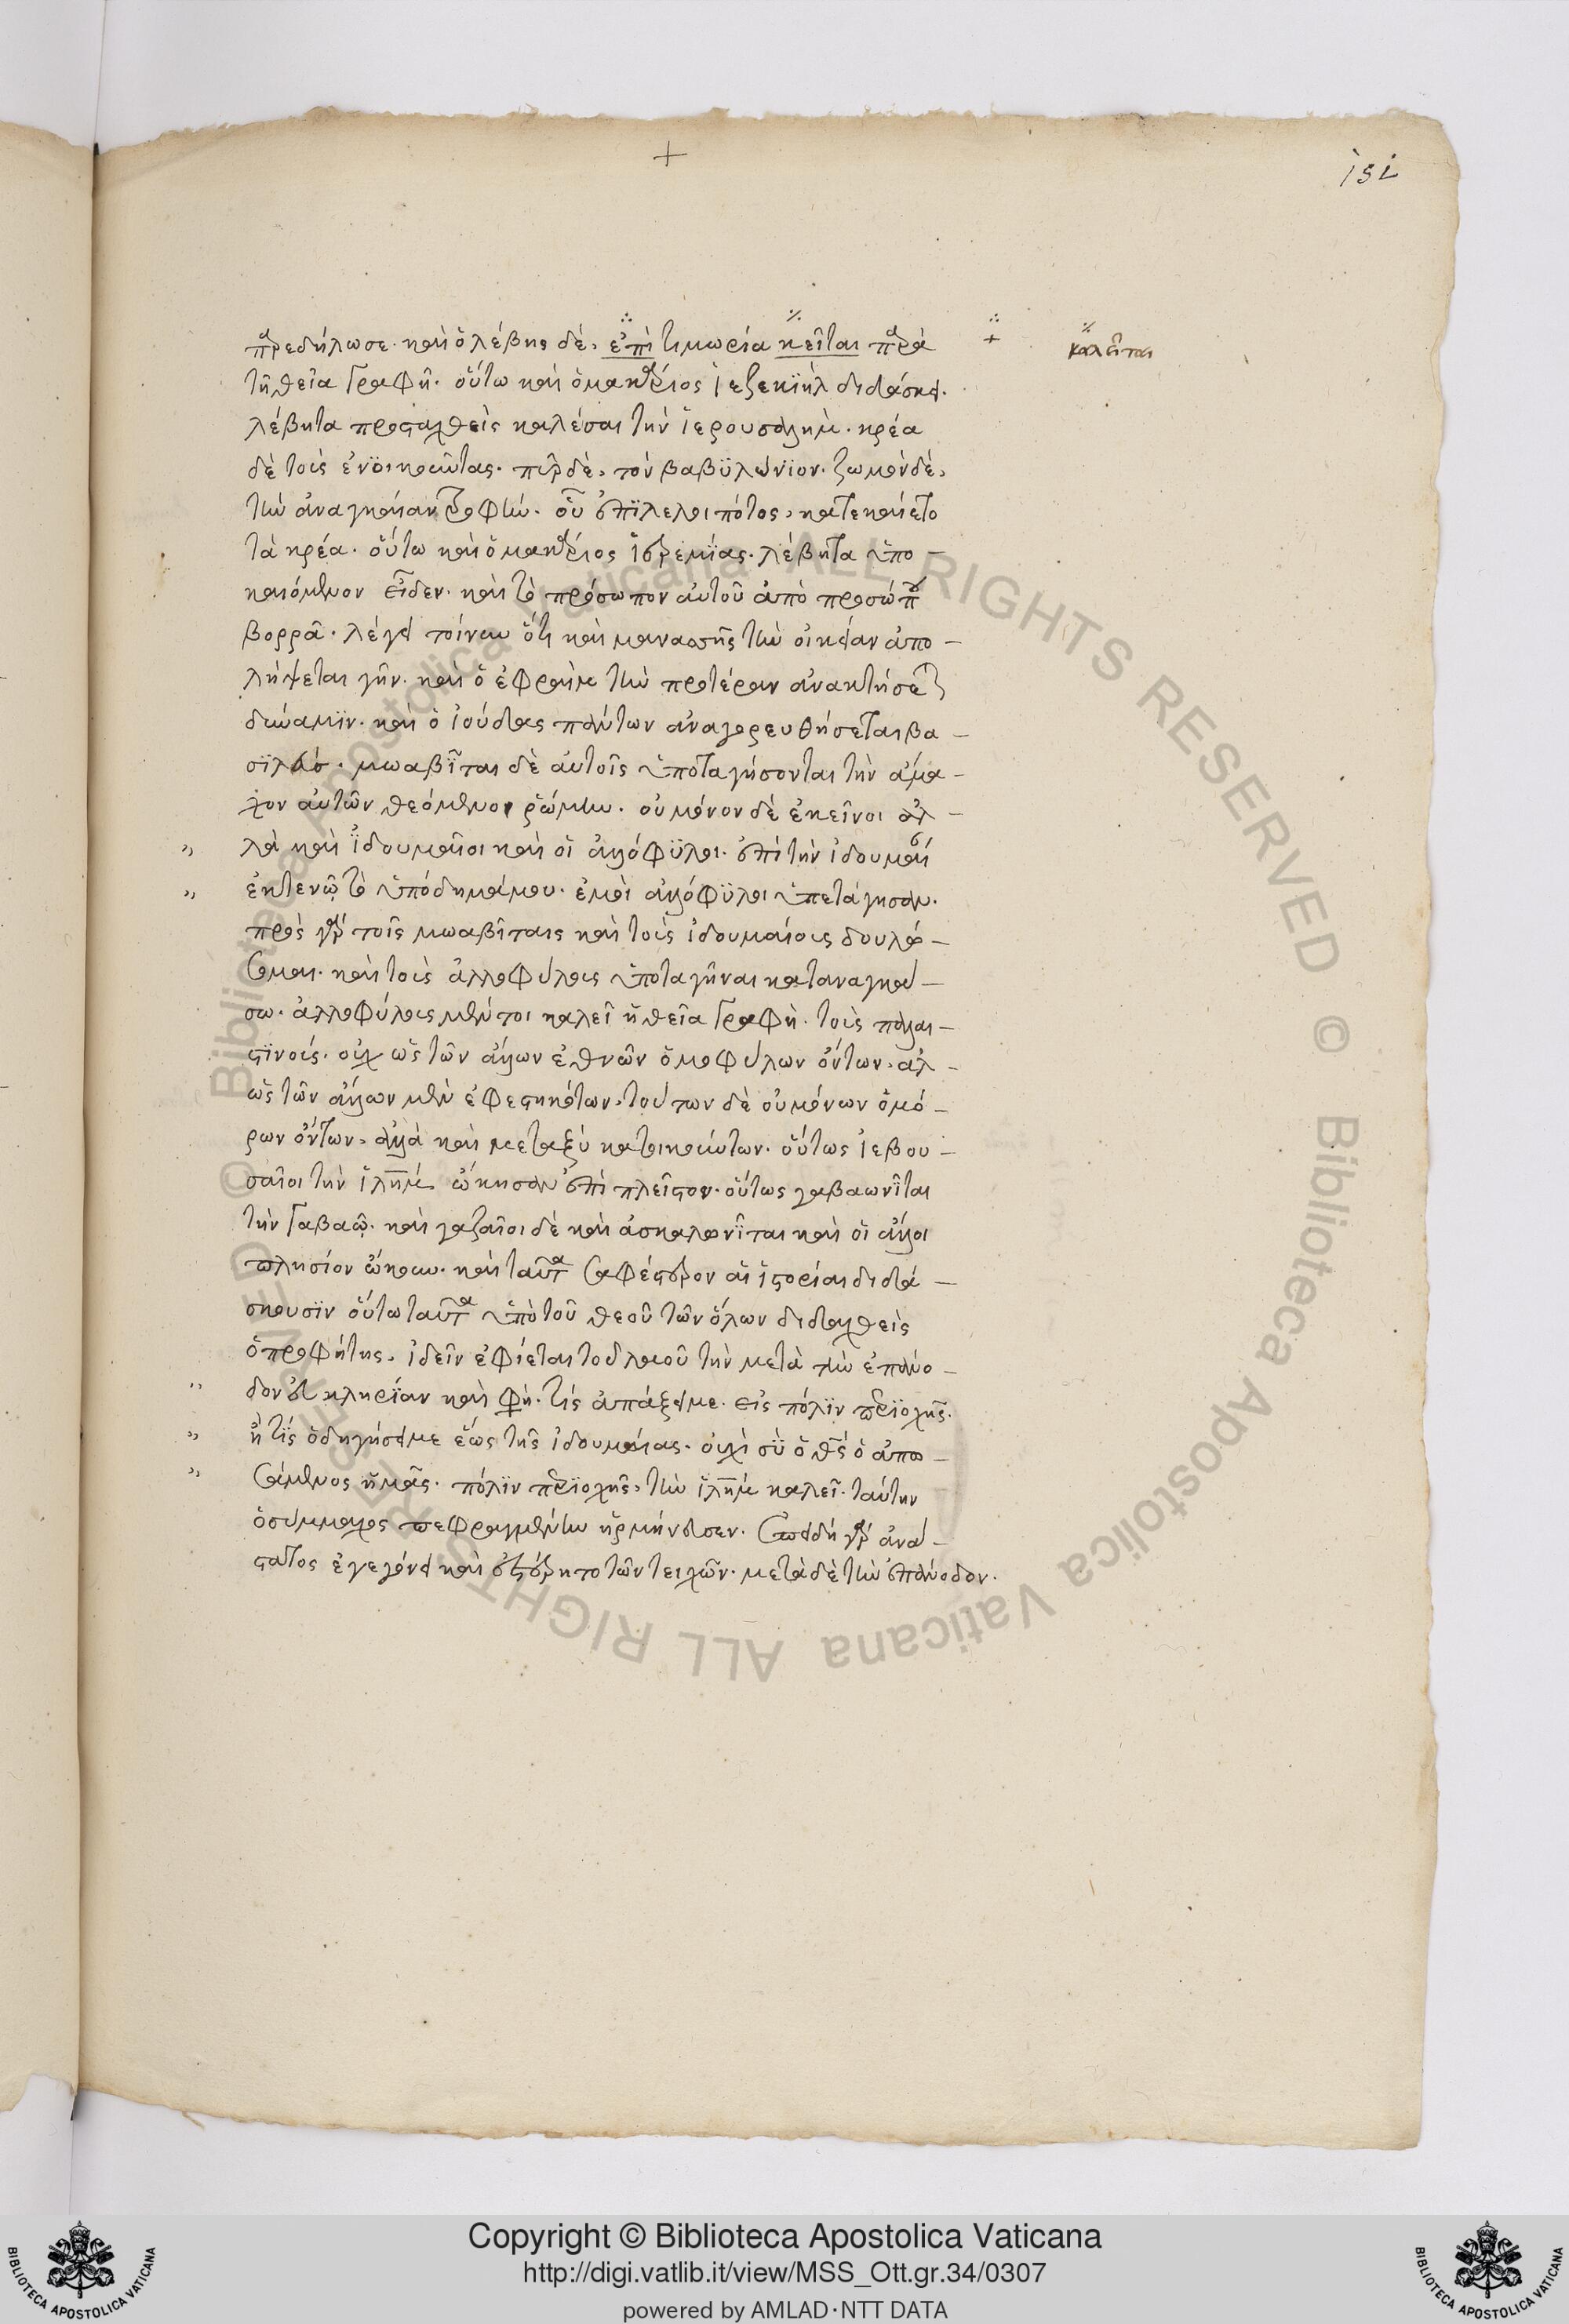 +
152
παρεδήλωσε. καὶ ὁ λέβης δὲ, ἐπὶ τιμωρία κεῖται παρὰ
καλεῖται
τῆ θεῖα γραφῆ. οὕτω καὶ ὁ μακάριος ἰεζεκϊὴλ διδάσκει.
λέβητα προσταχθεὶς καλέσαι τὴν ἱερουσαλὴμ. κρέα
δὲ τοὺς ἐνοικοῦντας. πῦρ δὲ, τὸν βαβϋλώνϊον. ζωμὸν δὲ,
τὴν ἀναγκαίαν τροφὴν. οὗ ἐπϊλελοιπότος, κατεκαίετο
τὰ κρέα. οὕτω καὶ ὁ μακάριος ἱερεμίας. λέβητα ὑπο-
καιόμενον εἶδεν. καὶ τὸ πρόσωπον αὐτοῦ ἀπὸ προσώπου
βορρᾶ. λέγει τοίνυν ὅτι καὶ μανασσῆς τὴν οἰκείαν ἀπο-
λήψεται γῆν. καὶ ὁ ἐφραὶμ τὴν προτέραν ἀνακτήσεται
δύναμϊν. καὶ ὁ ἰούδας πάντων ἀναγορευθήσεται βα-
σϊλεύς. μωαβῖται δὲ αὐτοῖς ὑποταγήσονται τὴν ἄμα-
χον αὐτῶν θεόμενοι ῥώμην. οὐ μόνον δὲ ἐκεῖνοι ἀλ-
λὰ καὶ ἰδουμαῖοι καὶ οἱ ἀλλόφϋλοι. ἐπὶ τὴν ἰδουμαίαν
ἐκτενῶ τὸ ὑπόδημά μου. ἐμοὶ ἀλλόφϋλοι ὑπετάγησαν.
πρὸς γὰρ τοῖς μωαβίταις καὶ τοὺς ἰδουμαίους δουλώ-
σομαι. καὶ τοὺς ἀλλοφύλους ὑποταγῆναι καταναγκά-
σω. ἀλλοφύλους μέντοι καλεῖ ἡ θεῖα γραφὴ. τοὺς παλαι-
στϊνοὺς. οὐχ ὡς τῶν ἄλλων ἐθνῶν ὁμοφύλων ὄντων, ἀλ-
ὡς τῶν ἄλλων μὲν ἐφεστηκότων, τούτων δὲ οὐ μόνων ὁμό-
ρων ὄντων, ἀλλὰ καὶ μεταξύ κατοικούντων. οὕτως ἰεβου-
σαῖοι τὴν ἰλημ ᾤκησαν ἐπὶ πλεῖστον. οὕτως γαβαωνῖται
τὴν γαβαῶ. καὶ γαζαῖοι δὲ καὶ ἀσκαλονῖται καὶ οἱ ἄλλοι
πλησίον ᾤκουν. καὶ ταῦτα σαφέστερον αἱ ἱστορίαι διδά-
σκουσϊν οὕτω ταῦτα ὑπὸ τοῦ θεοῦ τῶν ὅλων διδαχθεὶς
ὁ προφήτης, ἰδεῖν ἐφίεται τοῦ λαοῦ τὴν μετὰ τὴν ἐπάνο-
δον εὐκληρίαν καὶ φη. τίς ἀπάξει με εἰς πόλϊν περϊοχῆς.
ἢ τίς ὁδηγήσει με ἕως τῆς ἰδουμαίας. οὐχὶ σὺ ὁ θς ὁ ἀπω-
σάμενος ἡμᾶς. πόλϊν περϊοχῆς, τὴν ἰλημ καλεῖ. ταύτην
ὁ σύμμαχος πεφραγμένην ἡρμήνευσεν. ἐπειδὴ γὰρ ἀνά-
στατος ἐγεγόνει καὶ ἐστέρητο τῶν τειχῶν. μετὰ δὲ τὴν ἐπάνοδον.
Copyright © Biblioteca Apostolica Vaticana
http://digi.vatlib.it/view/MSS_Ott.gr.34/0307
powered by AMLAD·NTT DATA